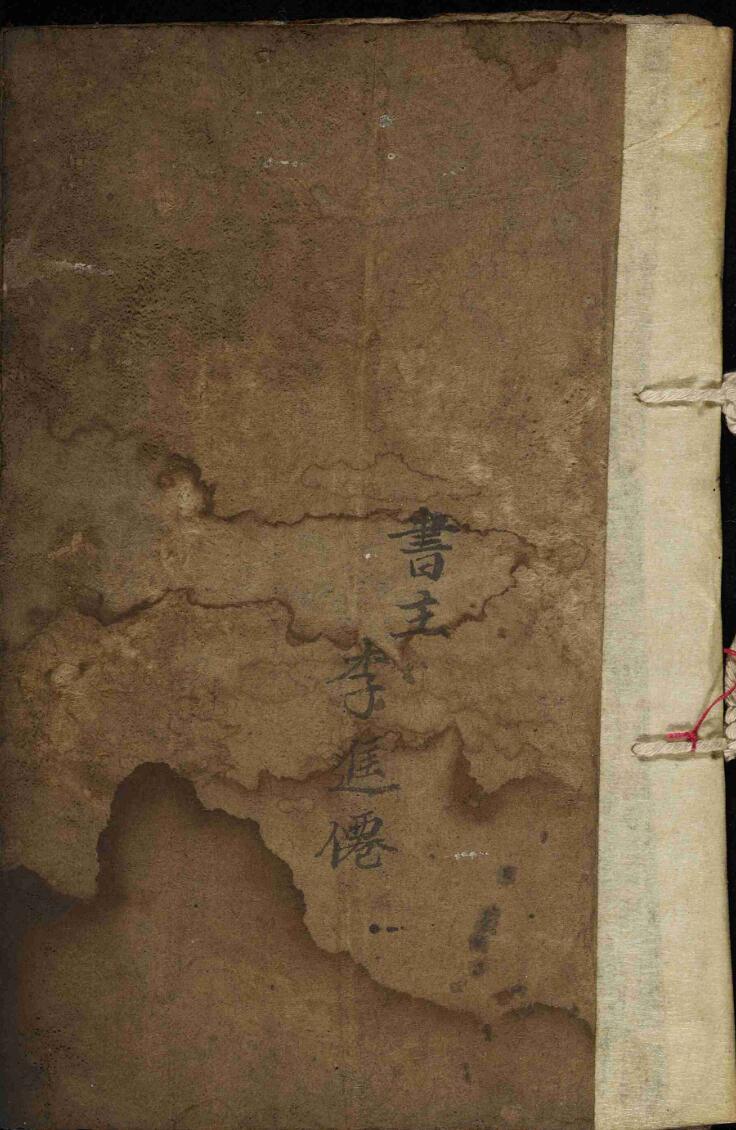 書主
李進僊